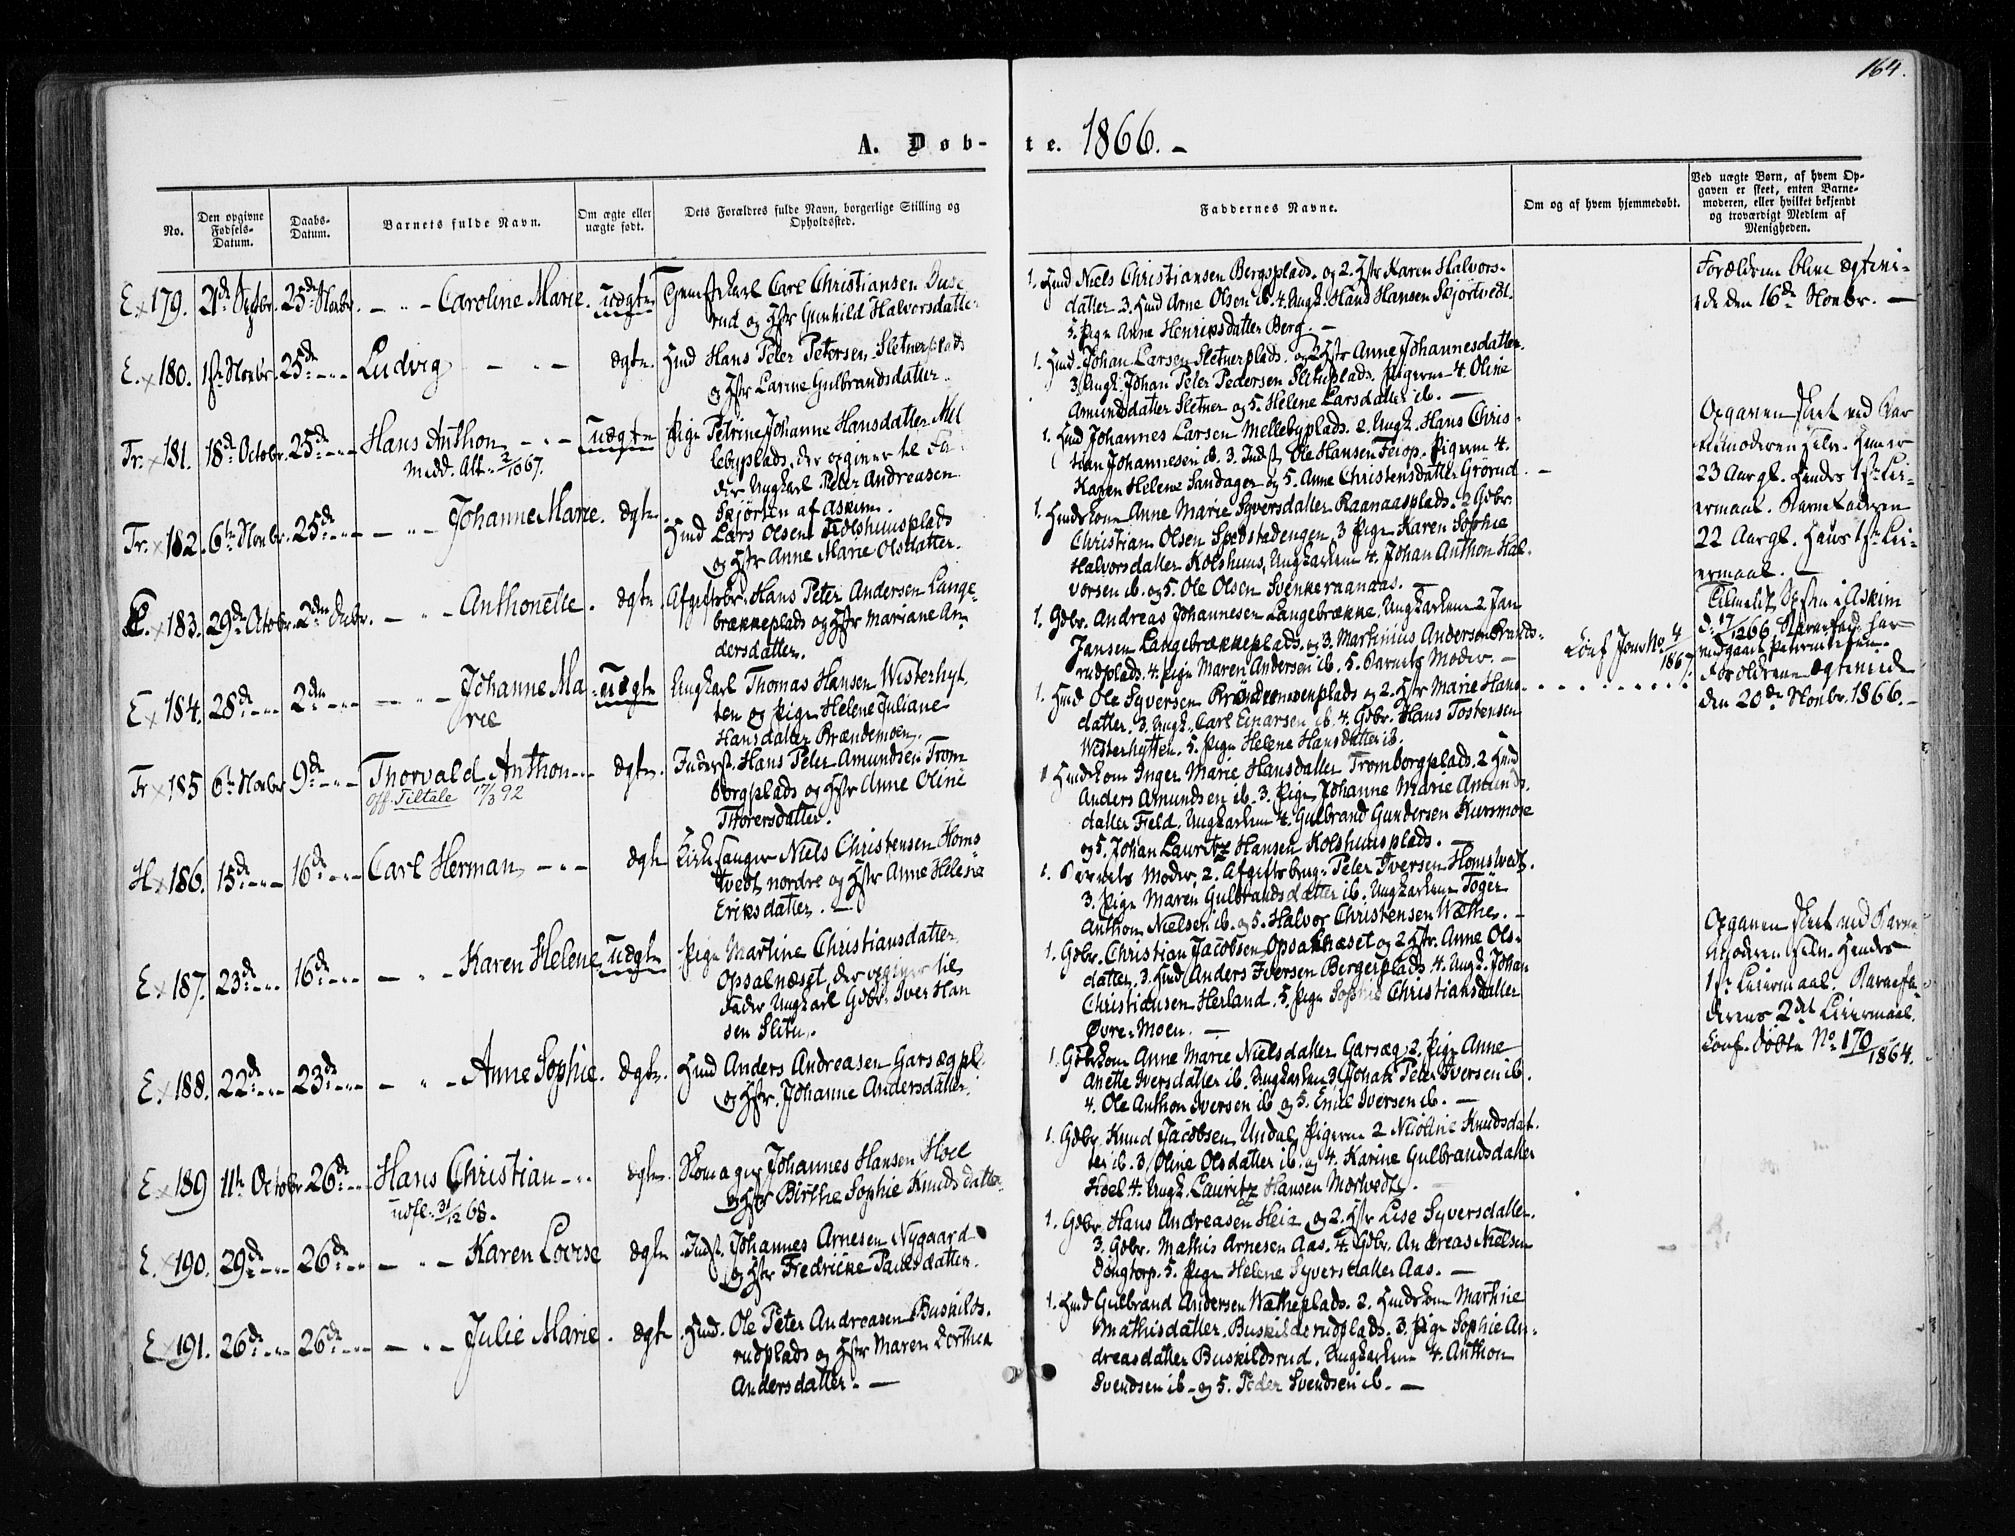 164.
A. Døb-
te. 1866. -
No.
Den opgivne
Fødsels-
Datum.
Daabs-
Datum.
Barnets fulde Navn.
Om ægte eller
uægte født.
Dets Forældres fulde Navn, borgerlige Stilling og
Opholdssted.
Faddernes Navne.
Om og af hvem hjemmedøbt.
Ved uægte Børn, af hvem Op-
gaven er skeet, enten Barne-
moderen, eller hvilket bekjendt
og troværdigt Medlem af
Menigheden.
E x 179. 21de 25de Novbr. - " - Caroline Marie. uægte
Carl Christiansen
rud og Hstr Gunhild Halvorsdatter
1. Hmd Niels Christiansen Bergsplads. og 2. Hstr Karen Halvors-
datter. 3. Hmd Arne Olsen ib. 4. Ungk. Hans Hansen Skjortvedt.
5. Pige Anne Henriksdatter Berg. -
Forældrene bleve ægtevi-
ede den 16de Novbr. -
E. x 180. 1ste Novbr. 25de - " - Ludvig - " - ægte.
Hmd Hans Peter Petersen Sletnerplads
og Hstr Larine Gulbrandsdatter.
1. Hmd. Johan Larsen Sletnerplads. og 2 Hstr Anne Johannesdatter.
3. Ungk. Johan Peter Pedersen Sletnplads. Pigerne 4. Oline
Amundsdatter Sletner og 5. Helene Larsdatter ib. -
Fr. x 181. 18de Octobr. 25de - " - Hans Anthon - " - uægte
Medd. Att. 2/10 67.
Pige Petrine Johanne Hansdatter Mel
lebyplads, der opgiver til Fa-
der Ungkarl Peter Andreasen
Skjørten af Askim.
1. Hmd Johannes Larsen Mellebyplads. 2. Ungk. Hans Chris-
tian Johannesen ib. 3. Indst. Ole Hansen Teiop. Pigerne 4.
Karen Helene Sandager og 5. Anne Christensdatter Grørud. -
Opgaven skeet ved Bar-
nemoderen selv. Hun er
23 Aar gl. Hendes 1ste Lei-
ermaal. Barnefaderen
22 Aar gl. Hans 1ste Lei-
ermaal. -
Fr. x 182. 6te Novbr. 25de - " - - " - Johanne Marie. ægte.
Hmd Lars Olsen Kolshuusplads
og Hstr Anne Marie Olsdatter.
1. Hmdskone Anne Marie Syversdatter Raanaasplads. 2 Gdbr.
Christian Olsen Spydstadengen. 3 Pige Karen Sophie
Halvorsdatter Kolshuus, Ungkarlene 4. Johan Anthon Hal-
vorsen ib. og 5. Ole Olsen Svenkeraanaas.
E. x 183. 29de Octobr. 2den Decbr. - " - Anthonette. ægte
Afgiftsbr. Hans Peter Andersen Lange-
brækkeplads og Hstr Mariane An-
dersdatter.
1. Gdbr. Andreas Johannesen Langebrække. Ungkarlene 2 Jan
Jansen Langebrækkeplads, og 3. Martinius Andersen Brænds-
rudplads. 4. Pige Maren Andersen ib. 5. Barnets Moder. -
Conf Jour No 4/1867.
E x 184. 28de - " - 2den - " - - " - Johanne Ma-
rie
uægte
Ungkarl Thomas Hansen Wisterhyt-
ten og Pige Helene Juliane
Hansdatter Brændemoen.
1. Hmd Ole Syversen Brændemoenplads og 2. Hstr Marie Hans-
datter. 3. Ungk. Carl Einarsen ib. 4. Gdbr. Hans Tostensen
Wisterhytten. 5. Pige Helene Hansdatter ib.
Forældrene ægteviede
den 20de Novbr. 1866. -
Fr x 185 6te Novbr 9de - " - Thorvald Anthon - " - ægte.
Off. Tiltale 17/3 92
Inderst. Hans Peter Amundsen Trom
borgplads og Hstr Anne Oline
Thorersdatter.
1 Hmdskone Inger Marie Hansdatter Tromborgplads. 2 Hmd
Anders Amundsen ib. 3. Pige Johanne Marie Amunds-
datter Feld, Ungkarlene 4. Gulbrand Gundersen Kursmose
og 5. Johan Lauritz Hansen Kolshuusplads. -
H x 186. 15de - " - 16de - " - Carl Herman - " - ægte
Kirkesanger Niels Christensen Homs
tvedt nordre og Hstr Anne Helene
Eriksdatter. -
1. Barnets Moder, 2. Afgiftsbrug. Peter Iversen Homstvedt.
3. Pige Maren Gulbrandsdatter ib. Ungkarlene Toger
Anthon Nielsen ib. og 5. Halvor Christensen Wæthe. -
E x 187. 23de - " - 16de - " - - " - Karen Helene uægte
Pige Martine Christiansdatter
Opsalnæset, der opgiver til
Fader Ungkarl Gdbr. Iver Han
sen Slitu.
1. Gdbr. Christian Jacobsen Opsalnæset og 2 Hstr. Anne Ols-
datter. 3. Hmd Anders Iversen Bergerplads. 4. Ungk. Johan
Christiansen Herland. 5. Pige Sophie Christiansdatter
Øvre-Moen. -
Opgaven skeet ved Barne-
moderen selv. Hendes
1ste Leiermaal. Barnefa-
derens 2det Leiermaal.
Conf. døbte No 170/1864.
E. x 188. 22de - " - 23de - " - - " - Anne Sophie. ægte.
Hmd Anders Andreasen Garsægpl.
og Hstr. Johanne Andersdatter.
1. Gdbrkone Anne Marie Nielsdatter Garsæg, 2. Pige Anne
Anette Iversdatter ib. Ungkarlene 3. Johan Peter Iversen ib.
4. Ole Anthon Iversen ib og 5. Emil Iversen ib. -
E. x 189 11te Octobr 26de - " - Hans Christian - " - ægte.
udfl. 31/12 68.
Skomager Johannes Hansen Hoel
og Hstr Birthe Sophie Knudsdatter.
1. Gdbr. Knud Jacobsen Undal, Pigerne 2 Nicoline Knudsdat-
ter ib. 3, Oline Olsdatter ib. og 4. Karine Gulbrandsdatter
Hoel 4. Ungk. Lauritz Hansen Mortvedt. -
E. x 190. 29de - " - 26de - " - - " - Karen Lovise ægte
Indst. Johannes Arnesen Nygaard
og Hstr Fredrikke Paulsdatter.
1. Gdbr Hans Andreasen Heia og 2. Hstr Lise Syversdatter.
3. Gdbr. Mathis Arnesen Aas. 4. Gdbr. Andreas Nielsen
Dongtorp. 5. Pige Helene Syversdatter Aas. -
E x 191. 26de - " - 26de - " - - " - Julie Marie. ægte
Hmd. Ole Peter Andreasen Buskilds-
rudplads og Hstr Maren Dorthea
Andersdatter. -
1. Hmd Gulbrand Andersen Wætheplads. 2. Hmdskone Marthe
Mathisdatter. Buskildsrudplads. 3. Pige Sophie An-
dreasdatter Buskildsrud. Ungkarlene 4. Anthon
Svendsen ib. og 5. Peder Svendsen ib. -